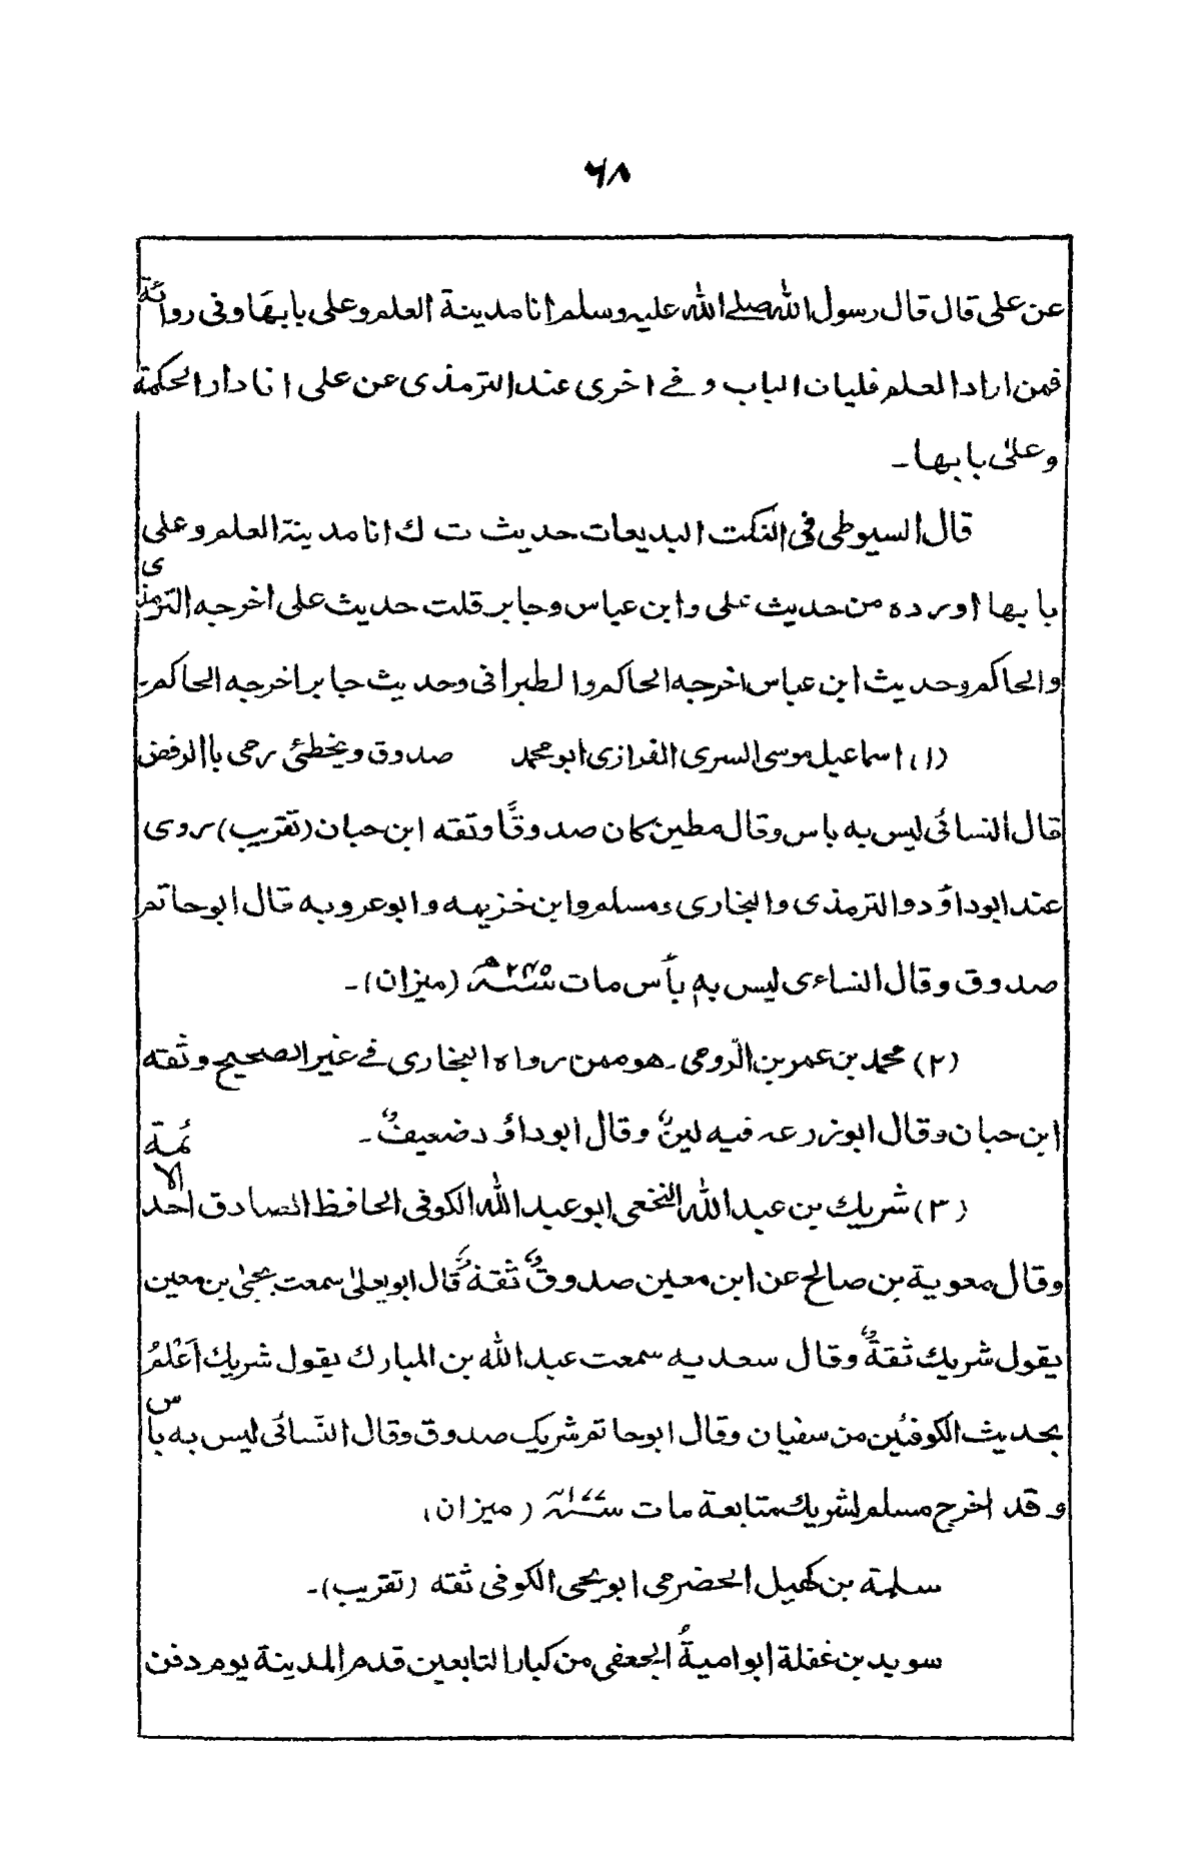 ۶۸
عن علی قال قال رسول اللہ صلے اللہ علیہ وسلم انا مدینة العلم وعلی بابھا وفی روائة
فمن اراد العلم فلیات الباب و فے اخری عند الترمذی عن علی انا دار الحکمة
وعلیٰ بابھا۔
قال السیوطی فی النکت البدیعات حدیث ت ك انا مدینة العلم وعلی
بابھا اوردہ من حدیث علی وابن عباس وجابر قلت حدیث علی اخرجہ الترمذی
والحاکم وحدیث ابن عباس اخرجہ الحاکم والطبرانی وحدیث جابر اخرجہ الحاکم۔
(۱) اسماعیل موسی السری الفرازی ابو محمد صدوق ویخطئ رمی باالرفض
قال النسائی لیس بہ باس وقال مطین کان صدوقًّا وثقه ابن حبان (تقریب) روی
عند ابوداؤد والترمذی والبخاری ومسلم وابن خزیمه وابوعروبه قال ابوحاتم
صدوق وقال النساءی لیس بہٖ بأس مات ۲۴۵ھ (میزان)۔
(۲) محمد بن عمر بن الرّومی۔ ھو ممن رواہ البخاری فے غیر الصحیح وثقه
ابن حبان وقال ابوزرعہ فیه لینٌ وقال ابوداؤد ضعیفٌ۔
(۳) شریك بن عبد اللہ النخعی ابو عبد اللہ الکوفی الحافظ الصادق احد الائمة
وقال معویة بن صالح عن ابن معین صدوقٌ ثقةٌ قال ابو یعلیٰ سمعت یحییٰ بن معین
یقول شریك ثقةٌ وقال سعدیه سمعت عبد اللہ بن المبارك یقول شریك اَعْلَمُ
بحدیث الکوفئین من سفیان وقال ابوحاتم شریك صدوق وقال النّسائی لیس به باس
وقد اخرج مسلم لشریك متابعة مات (میزان)
سلمة بن کھیل الحضرمی ابو یحیی الکوفی ثقه (تقریب)۔
سوید بن غفلة ابو امیةُ الجعفی من کبار التابعین قدم المدینة یوم دفن